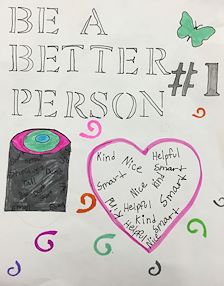 BE A
BETTER
#1
PERSON
Kind Nice Helpful
Smart
Smart
Nice Kind
Kind
Helpful
Smart
Kind
Helpful
Smart
Nice